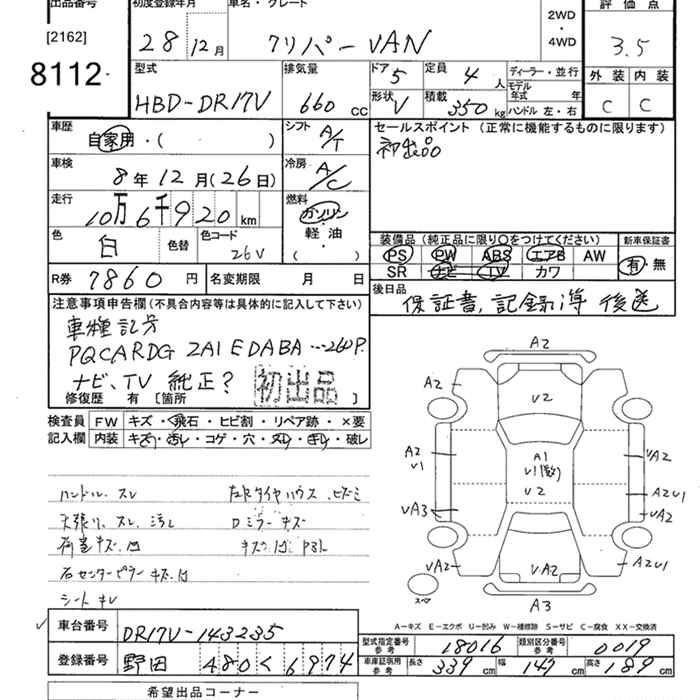 出品番号 初度登録年月 車名・グレード 評価点
[2162] 28 12月 クリパーVAN 2WD・4WD 3.5
8112
型式 排気量 ドア 5 定員 4人 ディーラー・並行 外装 内装
HBD-DR17V 660cc 形状 V 積載 350kg モデル年式 年 ハンドル 左・右 C C
車歴 自家用・( ) シフト A/T セールスポイント (正常に機能するものに限ります)
初出品
車検 8年12月(26日) 冷房 A/C
走行 10万6千920km 燃料 ガソリン・軽・油 ( )
色 白 色替 色コード 26V
装備品 (純正品に限り○をつけてください) 新車保証書
PS PW ABS エアB AW 有・無
SR ナビ TV カワ
R券 7860円 名変期限 月 日
後日品 保証書、記録簿 後送
注意事項申告欄(不具合内容等は具体的に記入して下さい)
車種記号
PQCARDG ZA1EDABA
ナビ、TV 純正? 初出品
修復歴 有 [箇所 ]
検査員 FW キズ・飛石・ヒビ割・リペア跡・×要
記入欄 内装 キズ・汚し・コゲ・穴・スレ・きり・破レ
ハンドル、スレ
天張り、スレ、汚し Dミラーキズ
荷室キズ、凹
右センターピラーキズ、凹
A2
A2 V2
A2 A1 VA2
V1 V1(数)
V2 A2V1
VA3 VA2
VA2 VA2 A2V1
スペア A3
A-キズ E-エクボ U-凹み W-補修跡 S-サビ C-腐食 XX-交換済
車台番号 DR17V-143235
型式指定番号 参考 18016 類別区分番号 参考 0019
登録番号 野田 480く6974
車庫証明用 参考 長さ 339cm 幅 147cm 高さ 189cm
希望出品コーナー